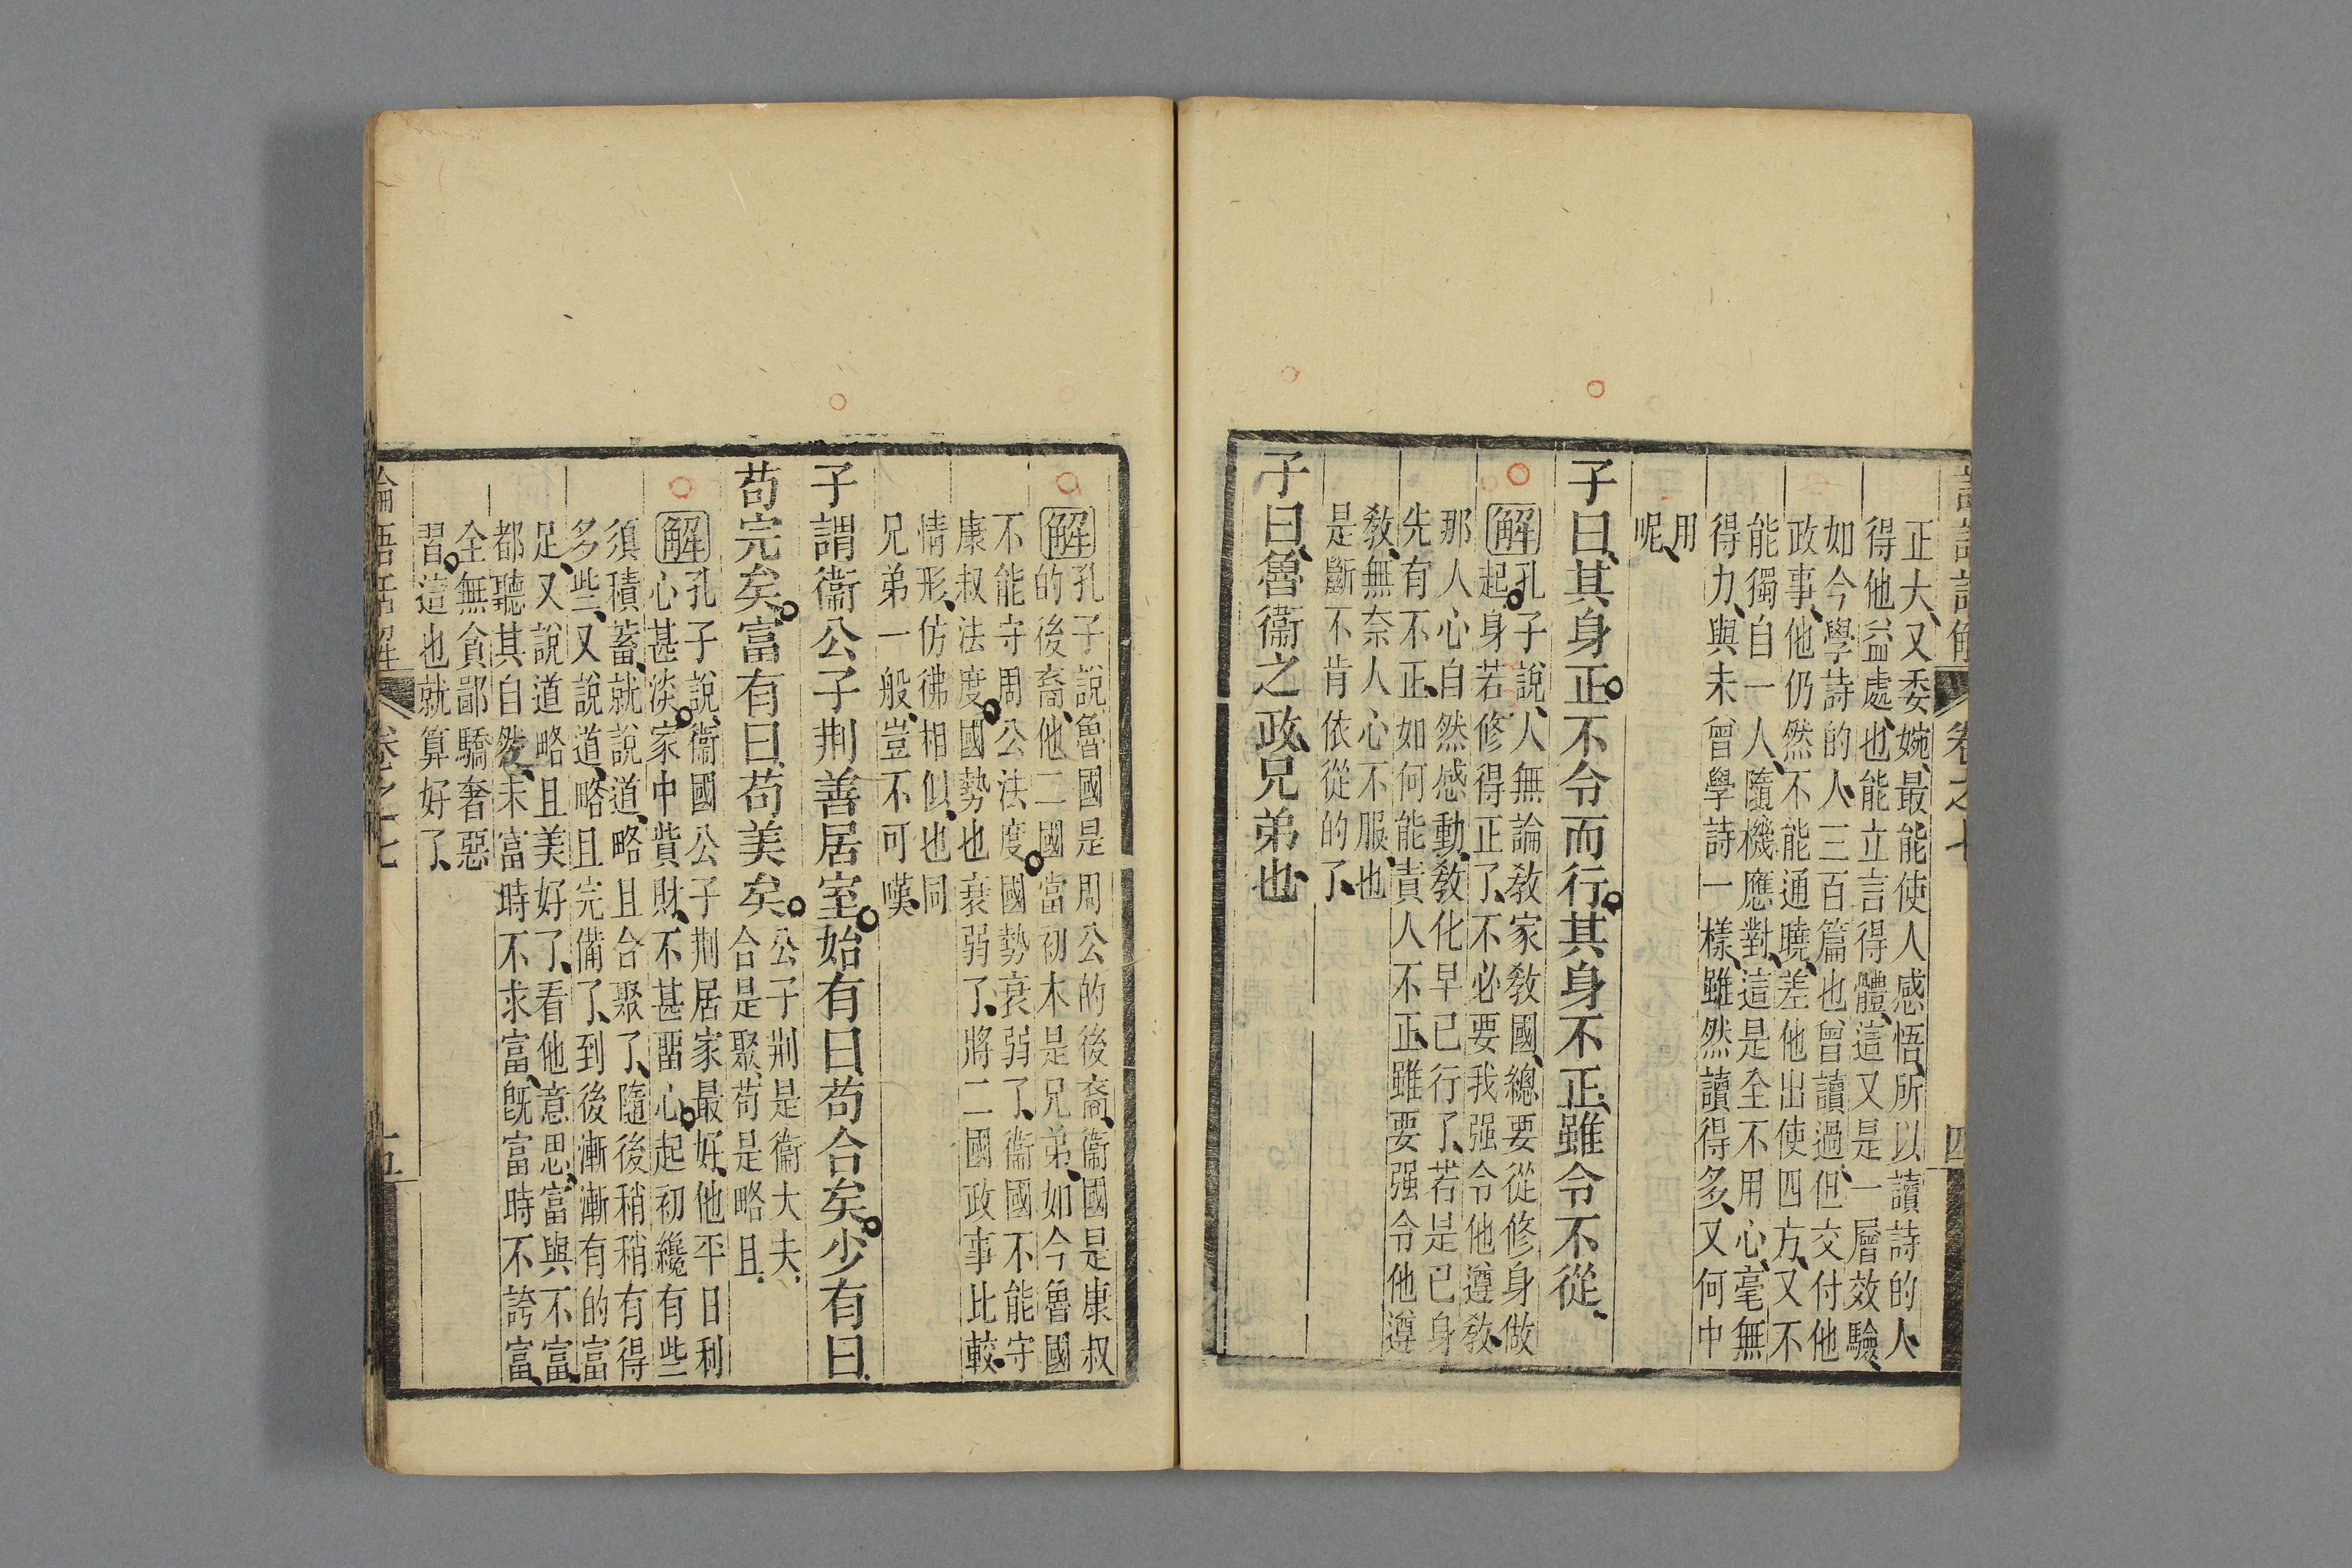 正大、又委婉、最能使人感悟、所以讀詩的人、
得他益處、也能立言得體、這又是一層效驗、
如今學詩的人、三百篇也曾讀過、但交付他
政事、他仍然不能通曉、差他出使四方、又不
能獨自一人、隨機應對、這是全不用心、毫無
得力、與未曾學詩一樣、雖然讀得多、又何中
用
呢、
子曰、其身正。不令而行。其身不正、雖令不從、
解 孔子說、人無論教家教國、總要從修身做
起。身若修得正了、不必要我强令他遵教、
那人心自然感動、教化早已行了、若是己身
先有不正、如何能責人不正、雖要强令他遵
教、無奈人心不服、也
是斷不肯依從的了、
子曰、魯衞之政、兄弟也、
卷之七
四
解 孔子說魯國是周公的後裔、衞國是康叔
的後裔、他二國當初本是兄弟、如今魯國
不能守周公法度。國勢衰弱了、衞國不能守
康叔法度。國勢也衰弱了、將二國政事比較、
情形、仿彿相似、也同
兄弟一般、豈不可嘆、
子謂衞公子荆善居室。始有曰、苟合矣。少有曰、
苟完矣。富有曰、苟美矣。
公子荆是衞大夫、
合是聚、苟是略且、
解 孔子說、衞國公子荆居家最好、他平日利
心甚淡。家中貲財、不甚㽞心。起初纔有些
須積蓄、就說道、略且合聚了、隨後稍稍有得
多些、又說道、略且完備了、到後漸漸有的富
足、又說道略且美好了、看他意思、富與不富、
都聽其自然、未富時不求富、旣富時不誇富、
全無貪鄙驕奢惡
習。這也就算好了、
論語話解
卷之七
五